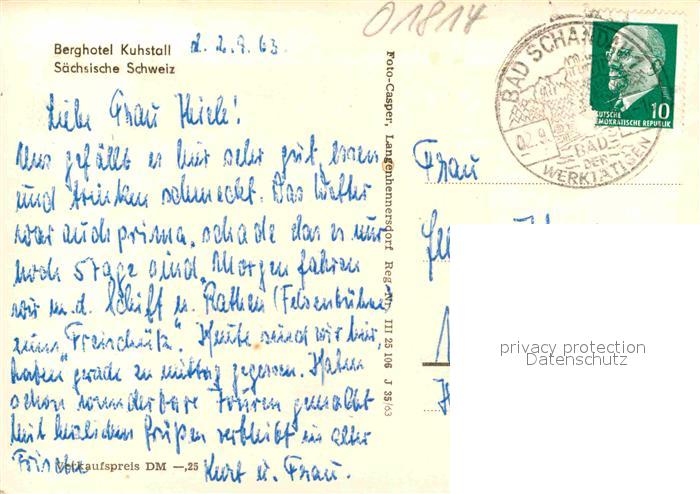 01814
Berghotel Kuhstall d. 2.9.63.
Sächsische Schweiz
Liebe Frau Thiele!
Uns gefällt es hier sehr gut, essen
und trinken schmeckt. Das Wetter
war auch prima, schade das es nur
noch 5 tage sind. Morgen fahren
wir m. d. Schiff n. Rathen (Felsenbühne
zum "Freischütz". Heute sind wir hier,
haben gerade zu mittag gegessen. Haben
schon wunderbare Touren gemacht
Mit herzlichen Grüßen verbleibt in alter
Frische Kurt u. Frau.
Verkaufspreis DM —,25
Foto-Casper, Langenhennersdorf Reg.-Nr. III 25 106 J 35/63
BAD SCHANDAU
02.9.
BAD
DER
WERKTÄTIGEN
DEUTSCHE
DEMOKRATISCHE REPUBLIK
10
Frau
privacy protection
Datenschutz